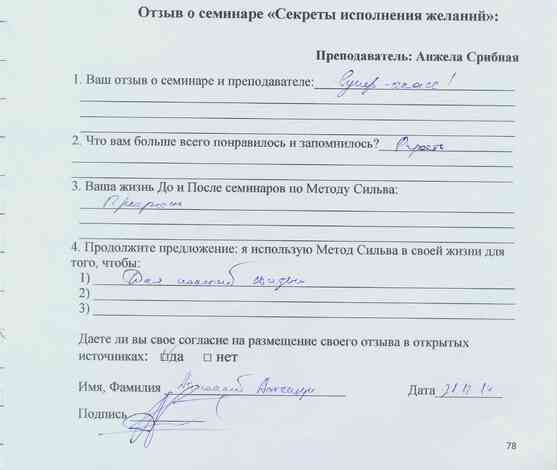 Отзыв о семинаре «Секреты исполнения желаний»:
Преподаватель: Анжела Срибная
1. Ваш отзыв о семинаре и преподавателе: Супер-класс!
2. Что вам больше всего понравилось и запомнилось?
3. Ваша жизнь До и После семинаров по Методу Сильва:
4. Продолжите предложение: я использую Метод Сильва в своей жизни для
того, чтобы:
1) Для
2)
3)
Даете ли вы свое согласие на размещение своего отзыва в открытых
источниках: да нет
Имя, Фамилия
Дата
Подпись
78